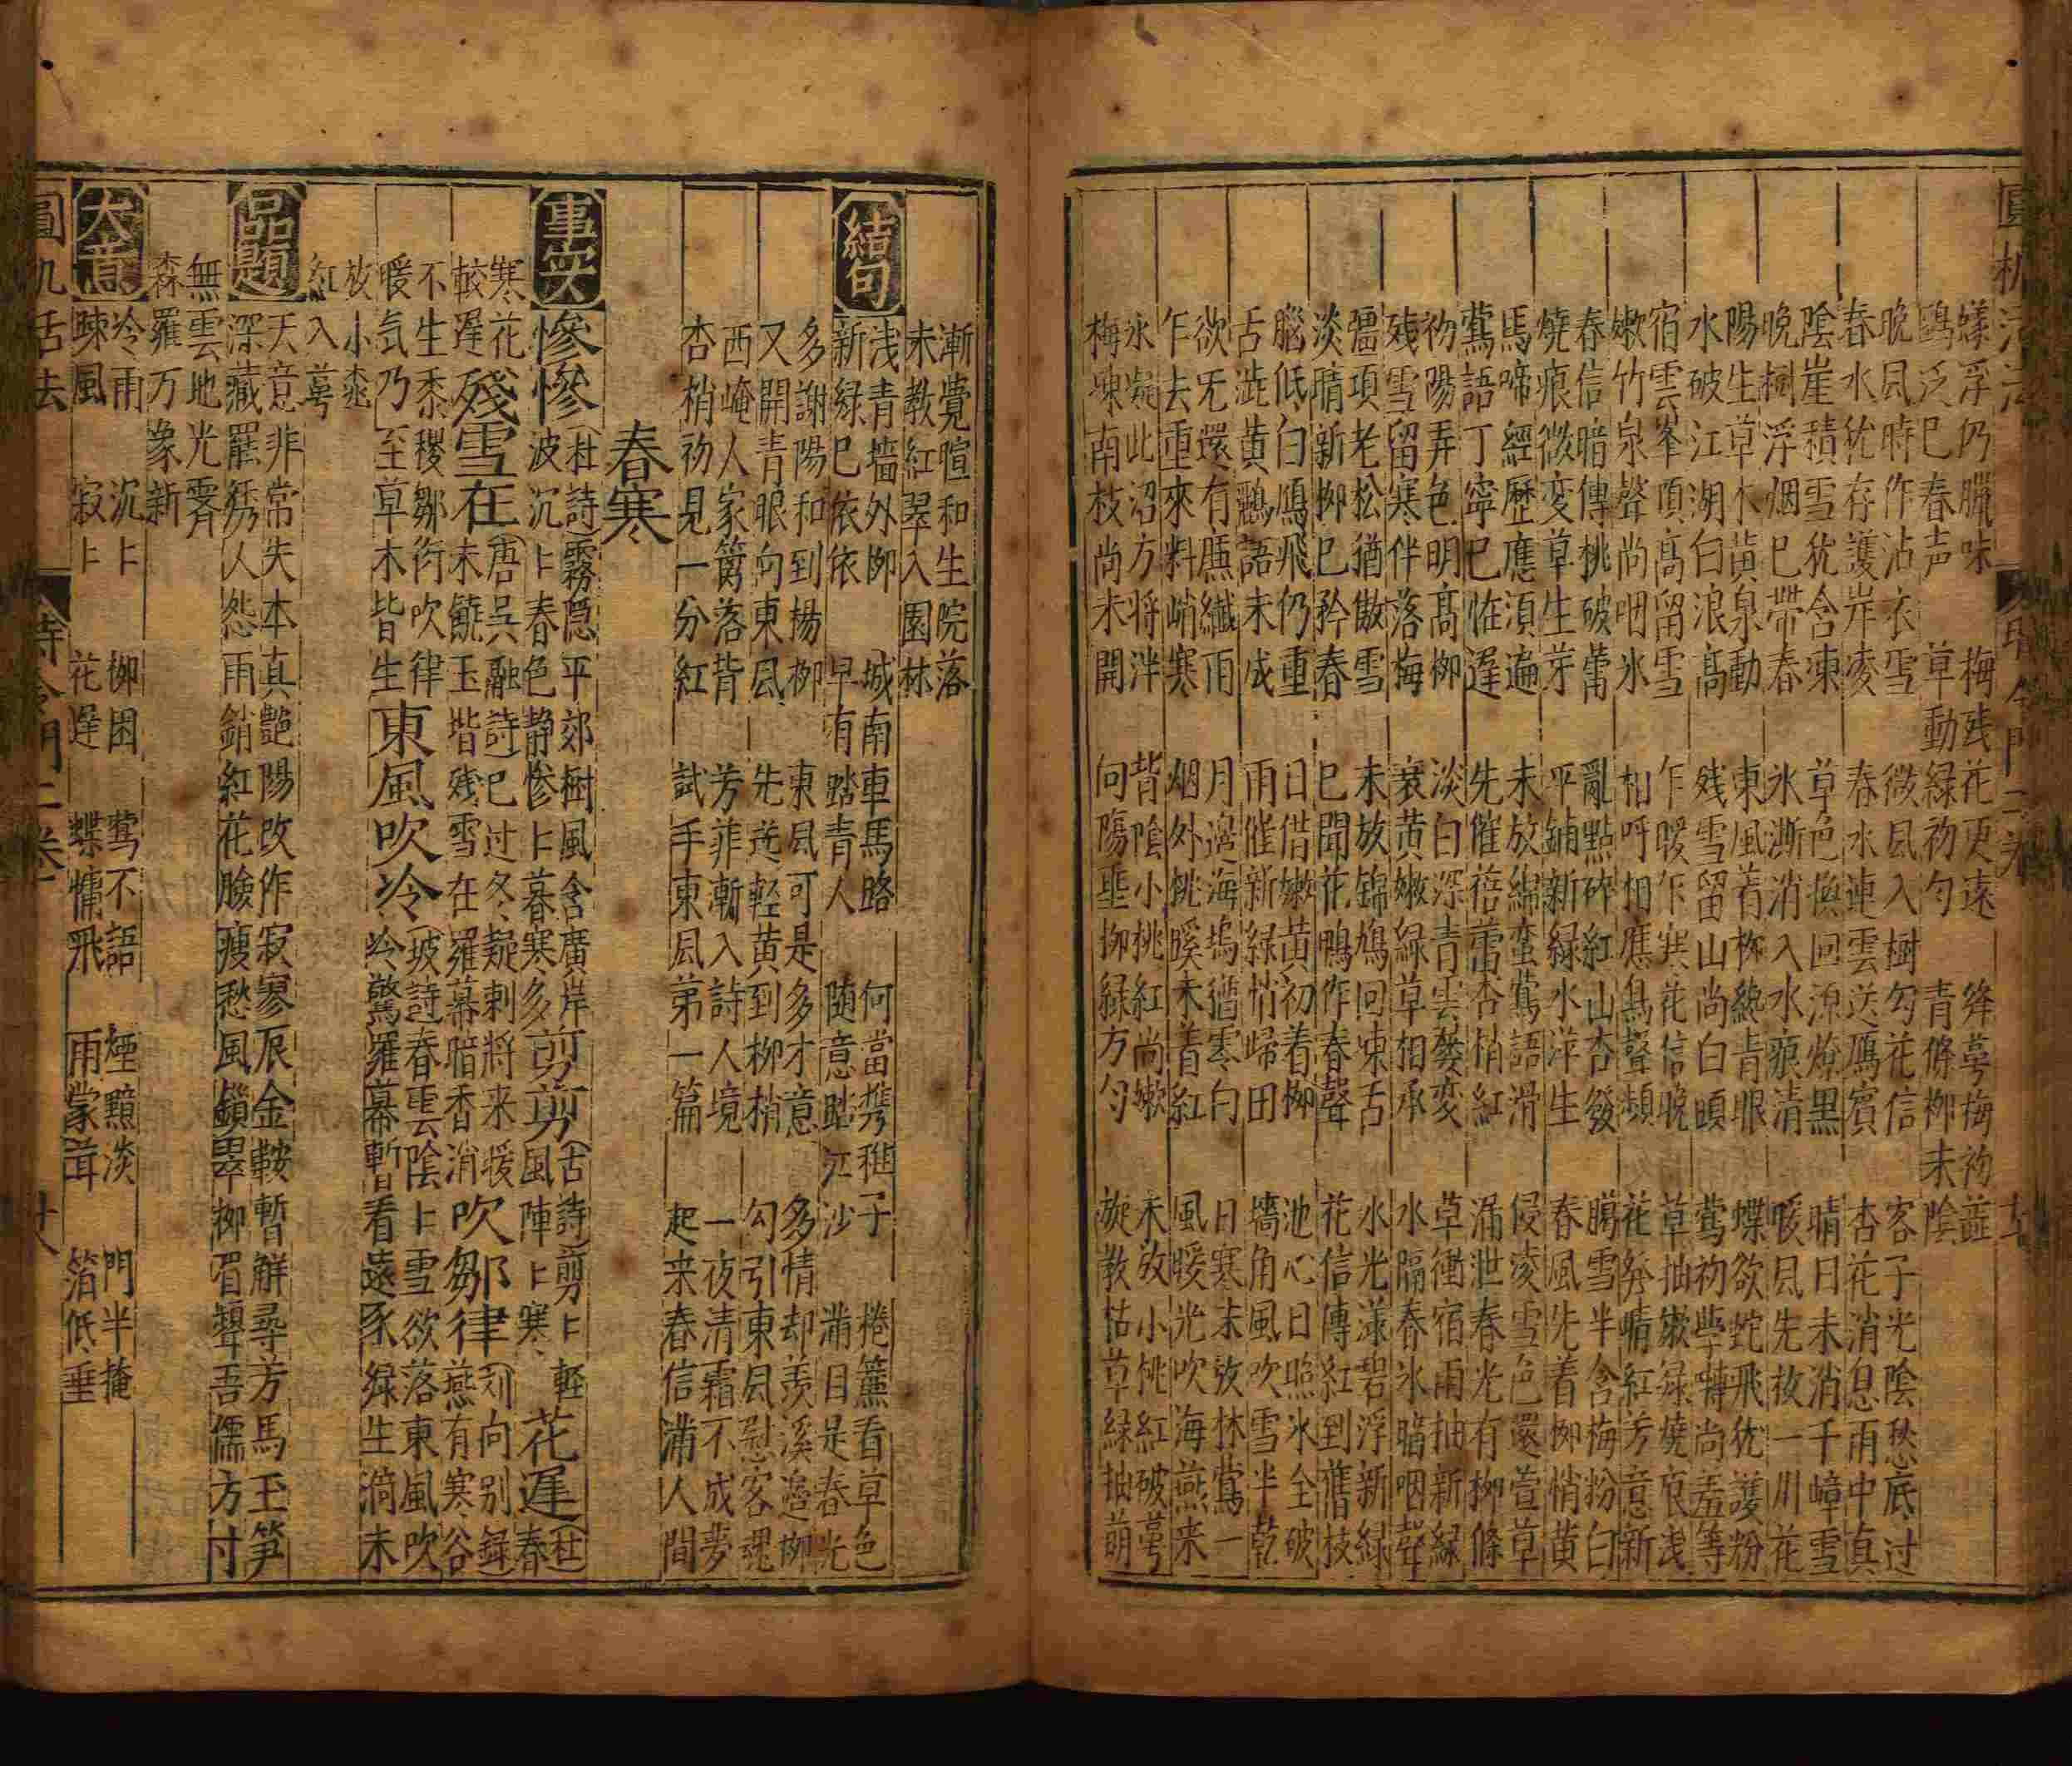 圓機活法 二卷 十七
蟻浮仍臘味 梅残花更遠 綘萼梅初蕋
鷗泛已春声 草動緑初勻 青條柳未陰
晚風時作沾衣雪 微風入樹勾花信 客子光陰愁底过
春水犹存護岸凌 春水連雲送鴈賓 杏花消息雨中真
陰崖積雪犹含凍 草色換回燎黑 晴日未消千嶂雪
晚樹浮烟已帶春 氷澌消入水痕清 暖風先放一川花
陽生草木黃泉動 東風着柳綻青眼 蝶欲飛犹護粉
水破江湖白浪高 残雪留山尚白頭 鶯初學囀尚羞等
宿雲峯頂高留雪 乍暖乍寒花信晚 草抽嫰緑燒痕浅
嫩竹泉聲尚咽氷 相呼相應鳥聲頻 花発晴紅芳意新
春信暗傳桃破蕾 亂點碎紅山杏發 臈雪半含梅粉白
燒痕微变草生芽 平鋪新緑水萍生 春風先着柳悄黄
馬啼經歷應須遍 未放綿蛮鶯語滑 侵凌雪色還萱草
鶯語丁寧已恠遲 先催蓓蕾杏梢紅 漏泄春光有柳條
初陽弄色明高柳 淡白深青雲变 草衝宿雨抽新緑
残雪留寒伴落梅 衰黄嫩緑草相承 水隔春氷暗咽聲
彊項老松猶傲雪 未放錦鳩回凍舌 水光漾碧浮新緑
淡晴新柳已矜春 已聞花鴨作春聲 花信傳紅到舊枝
腦低白鴈飛仍重 日借嫩黄初着柳 池心日照氷全破
舌澁黄鸝語未成 雨催新緑悄歸田 墻角風吹雪半乾
欲旡還有廉纖雨 月邊海塢猶寒白 日寒未放林鶯一
乍去重來料峭寒 烟外桃蹊未着紅 風暖光吹海燕来
氷凝此沼方将泮 背陰小桃紅尚嫰 未放小桃紅破萼
梅凍南枝尚未開 向陽垂柳緑方勻 旋教枯草緑抽萌
漸覺暄和生院落
未教紅翠入園林
結句
浅青墻外柳 城南車馬路 何當携稚子 捲簾看草色
新緑已依依 早有踏青人 随意踏江沙 満目是春光
多謝陽和到楊柳 東風可是多才意 多情却羨溪邉柳
又開青眼向東風 先送輕黄到柳梢 勾引東風慰客魂
西崦人家篱落背 芳菲漸入詩人境 一夜清霜不成夢
杏梢初見一分紅 試手東風第一篇 起来春信満人間
春寒
事实
慘慘 杜詩霧隠平郊樹風含廣岸波沉〻春色静慘〻暮寒多 剪剪 古詩剪〻軽風陣〻寒 花遲 杜春
寒花較遲 殘雪在 唐吳融詩已过冬疑剩將来援未饒玉堦残雪在羅幕暗香消 吹鄒律 刘向别錄燕有寒谷
不生黍稷鄒衍吹律暖気乃至草木皆生 東風吹冷 坡詩春雲陰〻雪欲落東風吹冷驚羅幕暫看遠豕緑生漪未
放小桃紅入萼
品題
天意非常失本真艶陽改作寂寥辰金鞍暫觧尋芳馬玉笋
深藏罷綉人怨雨銷紅花臉痩愁風鎖翠柳眉顰吾儒方寸
無雲地光霽
森羅万象新
大意
冷雨 沉〻 柳困 鶯不語 煙黯淡 門半掩
凍風 寂〻 花遲 蝶慵飛 雨蒙茸 箔低垂
圓机活法 詩令門二卷 十八